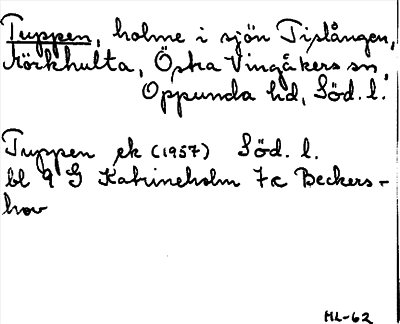 Tuppen, holme i sjön Tislången,
Mörkhulta, Östra Vingåkers sn,
Oppunda hd, Söd. l.
Tuppen ek (1957) Söd. l.
bl 9 G Katrineholm 7c Beckers-
hov
ML-62